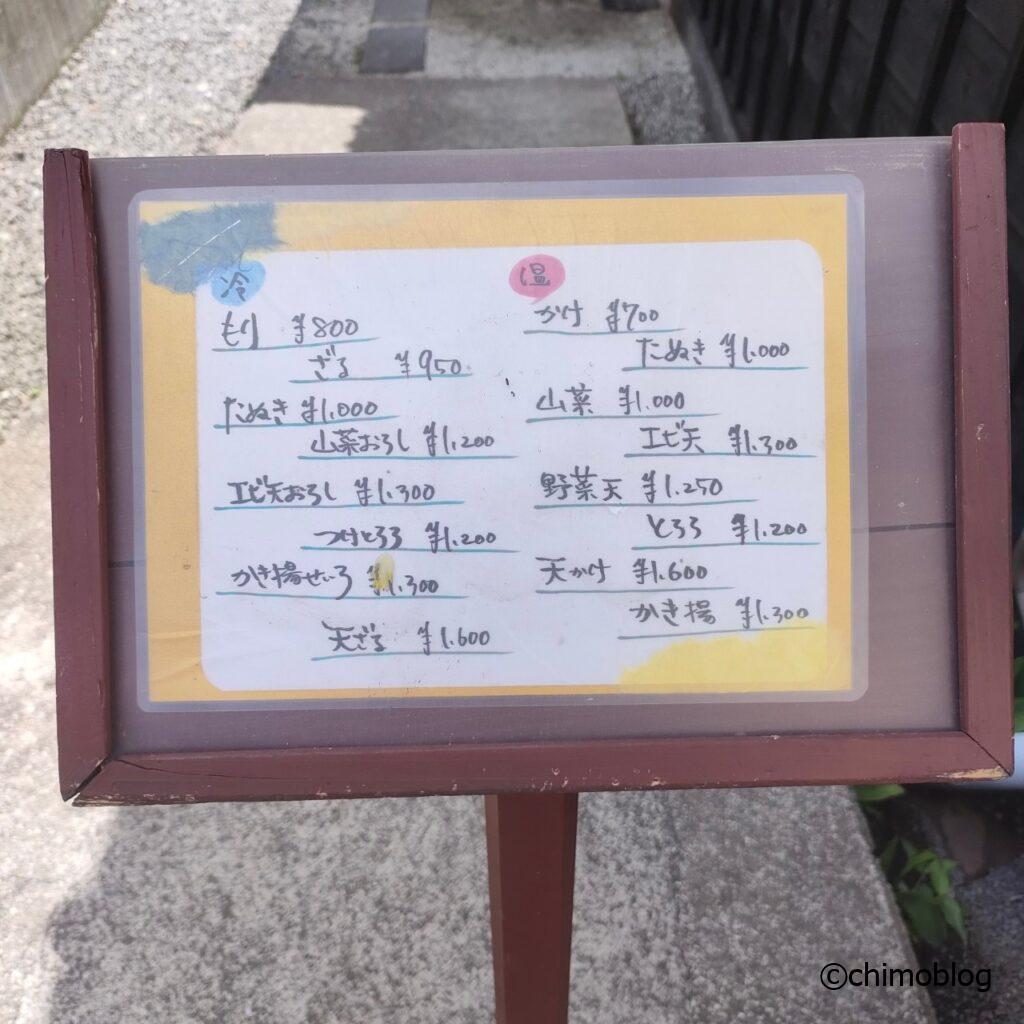 冷
もり ¥800
ざる ¥950
たぬき ¥1.000
山菜おろし ¥1.200
エビ天おろし ¥1.300
つけとろろ ¥1.200
かき揚せいろ ¥1.300
天ざる ¥1.600
温
かけ ¥700
たぬき ¥1.000
山菜 ¥1.000
エビ天 ¥1.300
野菜天 ¥1.250
とろろ ¥1.200
天かけ ¥1.600
かき揚 ¥1.300
©chimoblog